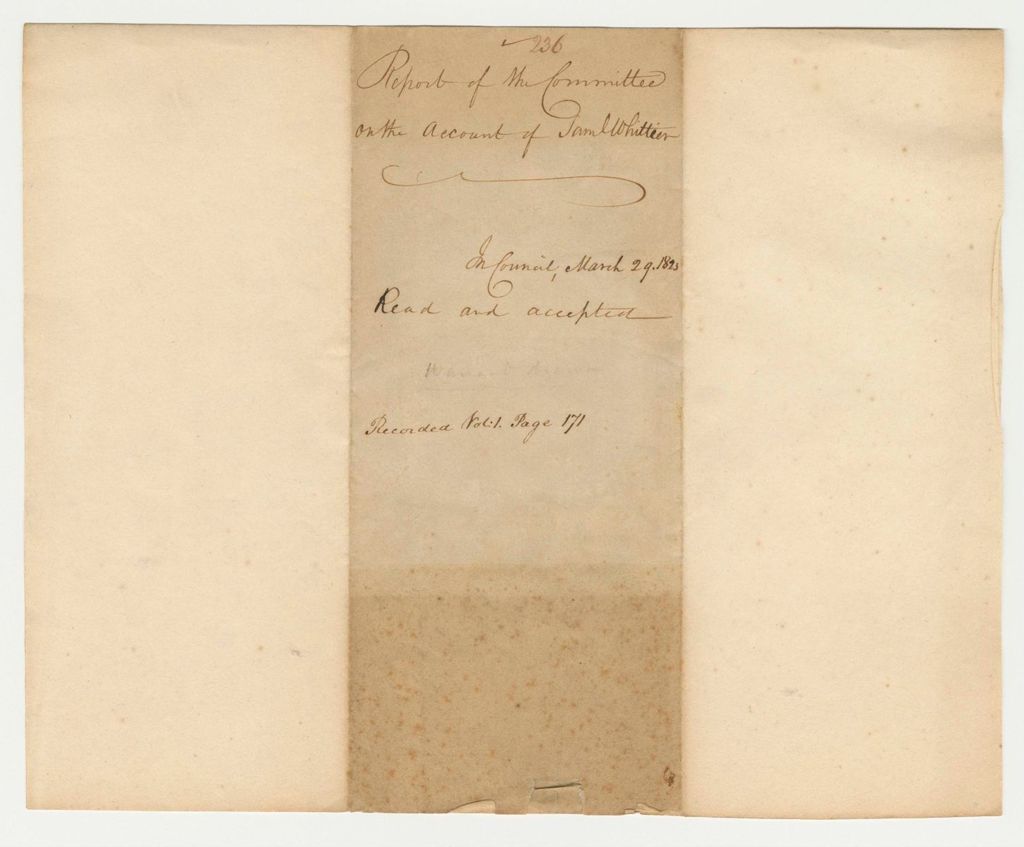 236
Report of the Committee
on the Account of Saml Whittier
In Council, March 29. 1823
Read and accepted
Warrant drawn
Recorded Vol: 1. Page 171